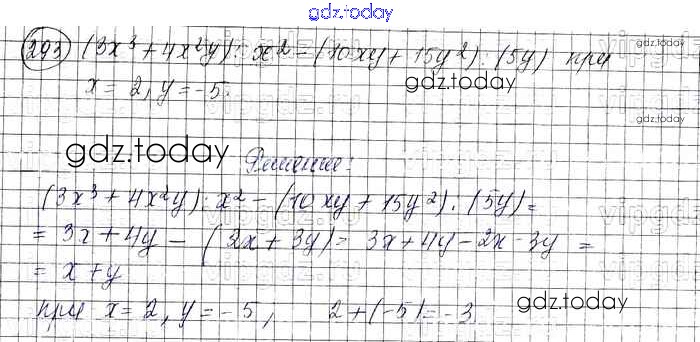 gdz.today
293 (3x³ + 4x²y) : x² - (10xy + 15y²) : (5y) при
gdz.today
x = 2, y = -5.
gdz.today
gdz.today Решение:
(3x³ + 4x²y) : x² - (10xy + 15y²) : (5y) =
= 3x + 4y - (2x + 3y) = 3x + 4y - 2x - 3y =
= x + y
при x = 2, y = -5, 2 + (-5) = -3
gdz.today